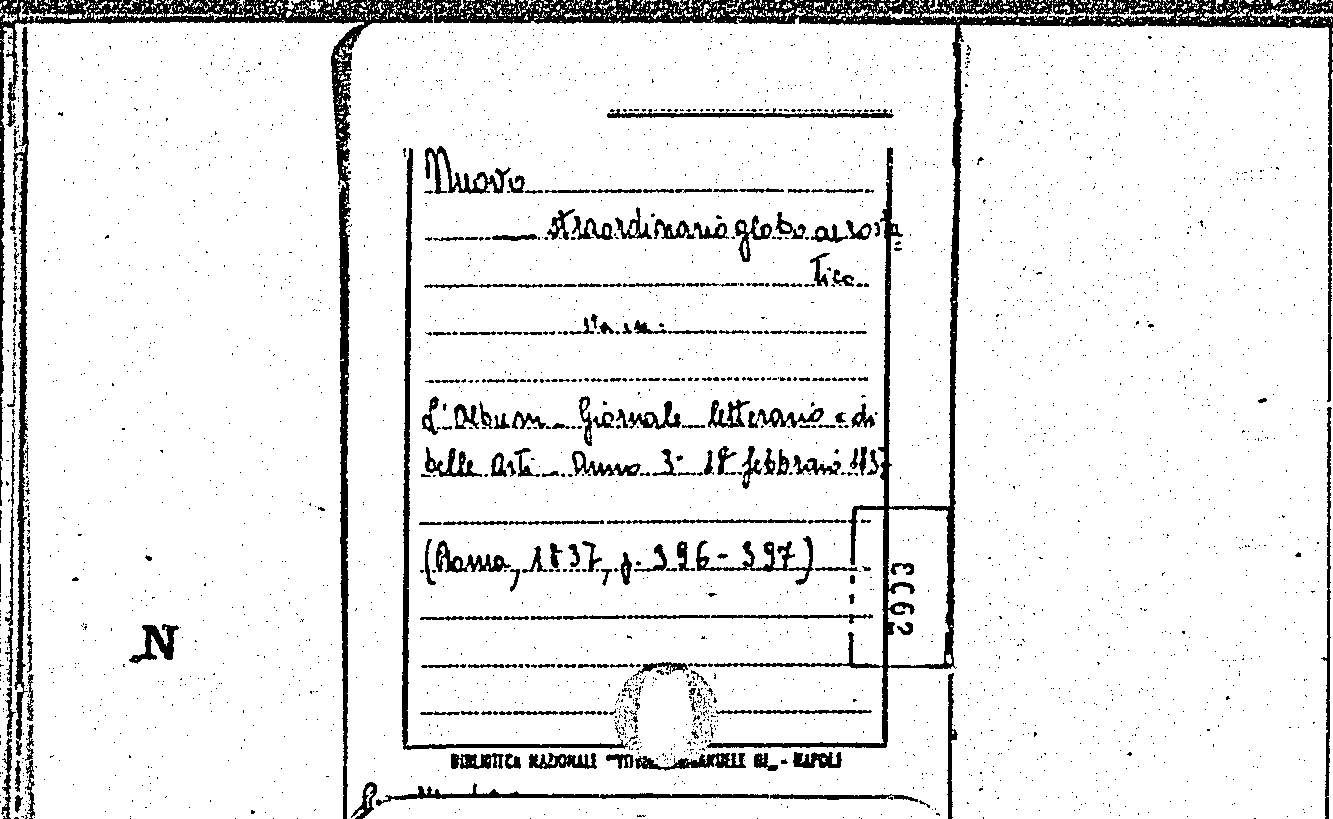 Nuovo
— straordinario globo aerosta=
tico
L'Album - Giornale letterario e di
belle Arti - Anno 3° 18 febbraio 1837
(Roma, 1837, p. 396-397)
N
BIBLIOTECA NAZIONALE "VITTORIO EMANUELE III" - NAPOLI